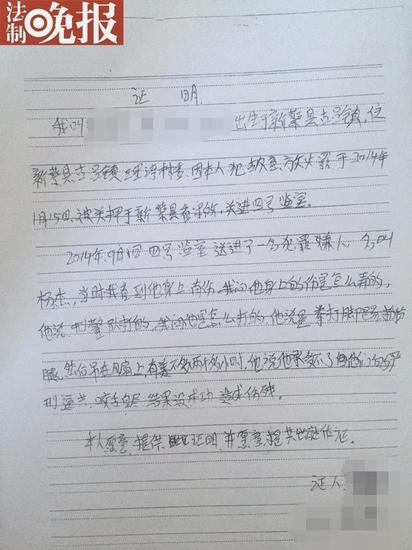 法制晚报
证 明
我叫 出生于新蔡县古吕镇,住
新蔡县古吕镇 村委,因本人犯故意放火罪于2014年
1月15日被关押于新蔡县看守所,关进四号监室。
2014年9月 四号监室送进了一名犯罪嫌人,名叫
杨杰,当时我看到他身上有伤,我问他身上的伤是怎么弄的,
他说,刑警队打的,我问他是怎么打的,他说是拳打脚踢
腿,然后吊在 上,有差不多两个多小时,他说他承受不了他们的严
刑逼供,咬舌自尽,结果没成功造成伤残。
本人愿意提供此证明,并愿意提共出庭作证。
证人: